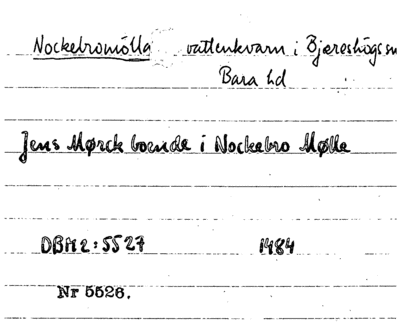 Nockebromölla vattenkvarn i Bjereshögs sn
Bara hd
Jens Mørck boende i Nockebro Mølle
DBM2:5527 1484
Nr 5526.